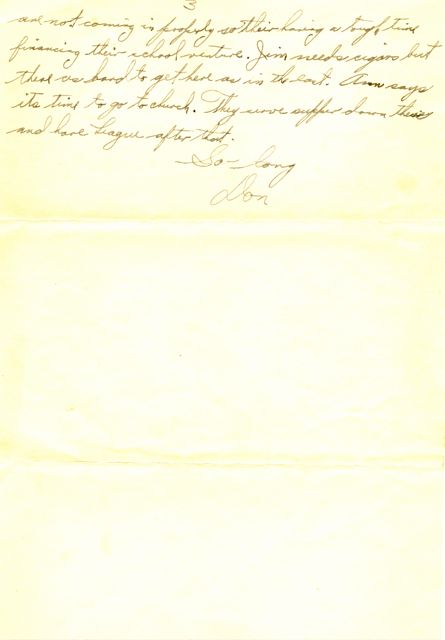 3
are not coming in properly so their having a tough time
financing their school venture. Jim needs cigars but
there as hard to get here as in the east. Ann says
its time to go to church. They serve supper down there
and have League after that.
So-long
Don